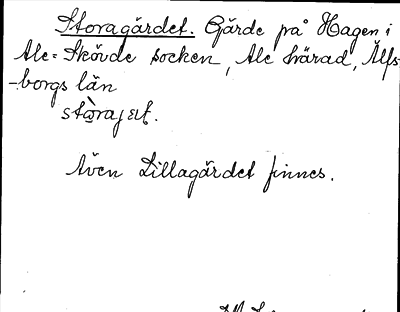 Storagärdet. Gärde på Hagen i
Ale-Skövde socken, Ale härad, Älfs-
-borgs län

Även Lillagärdet finnes.